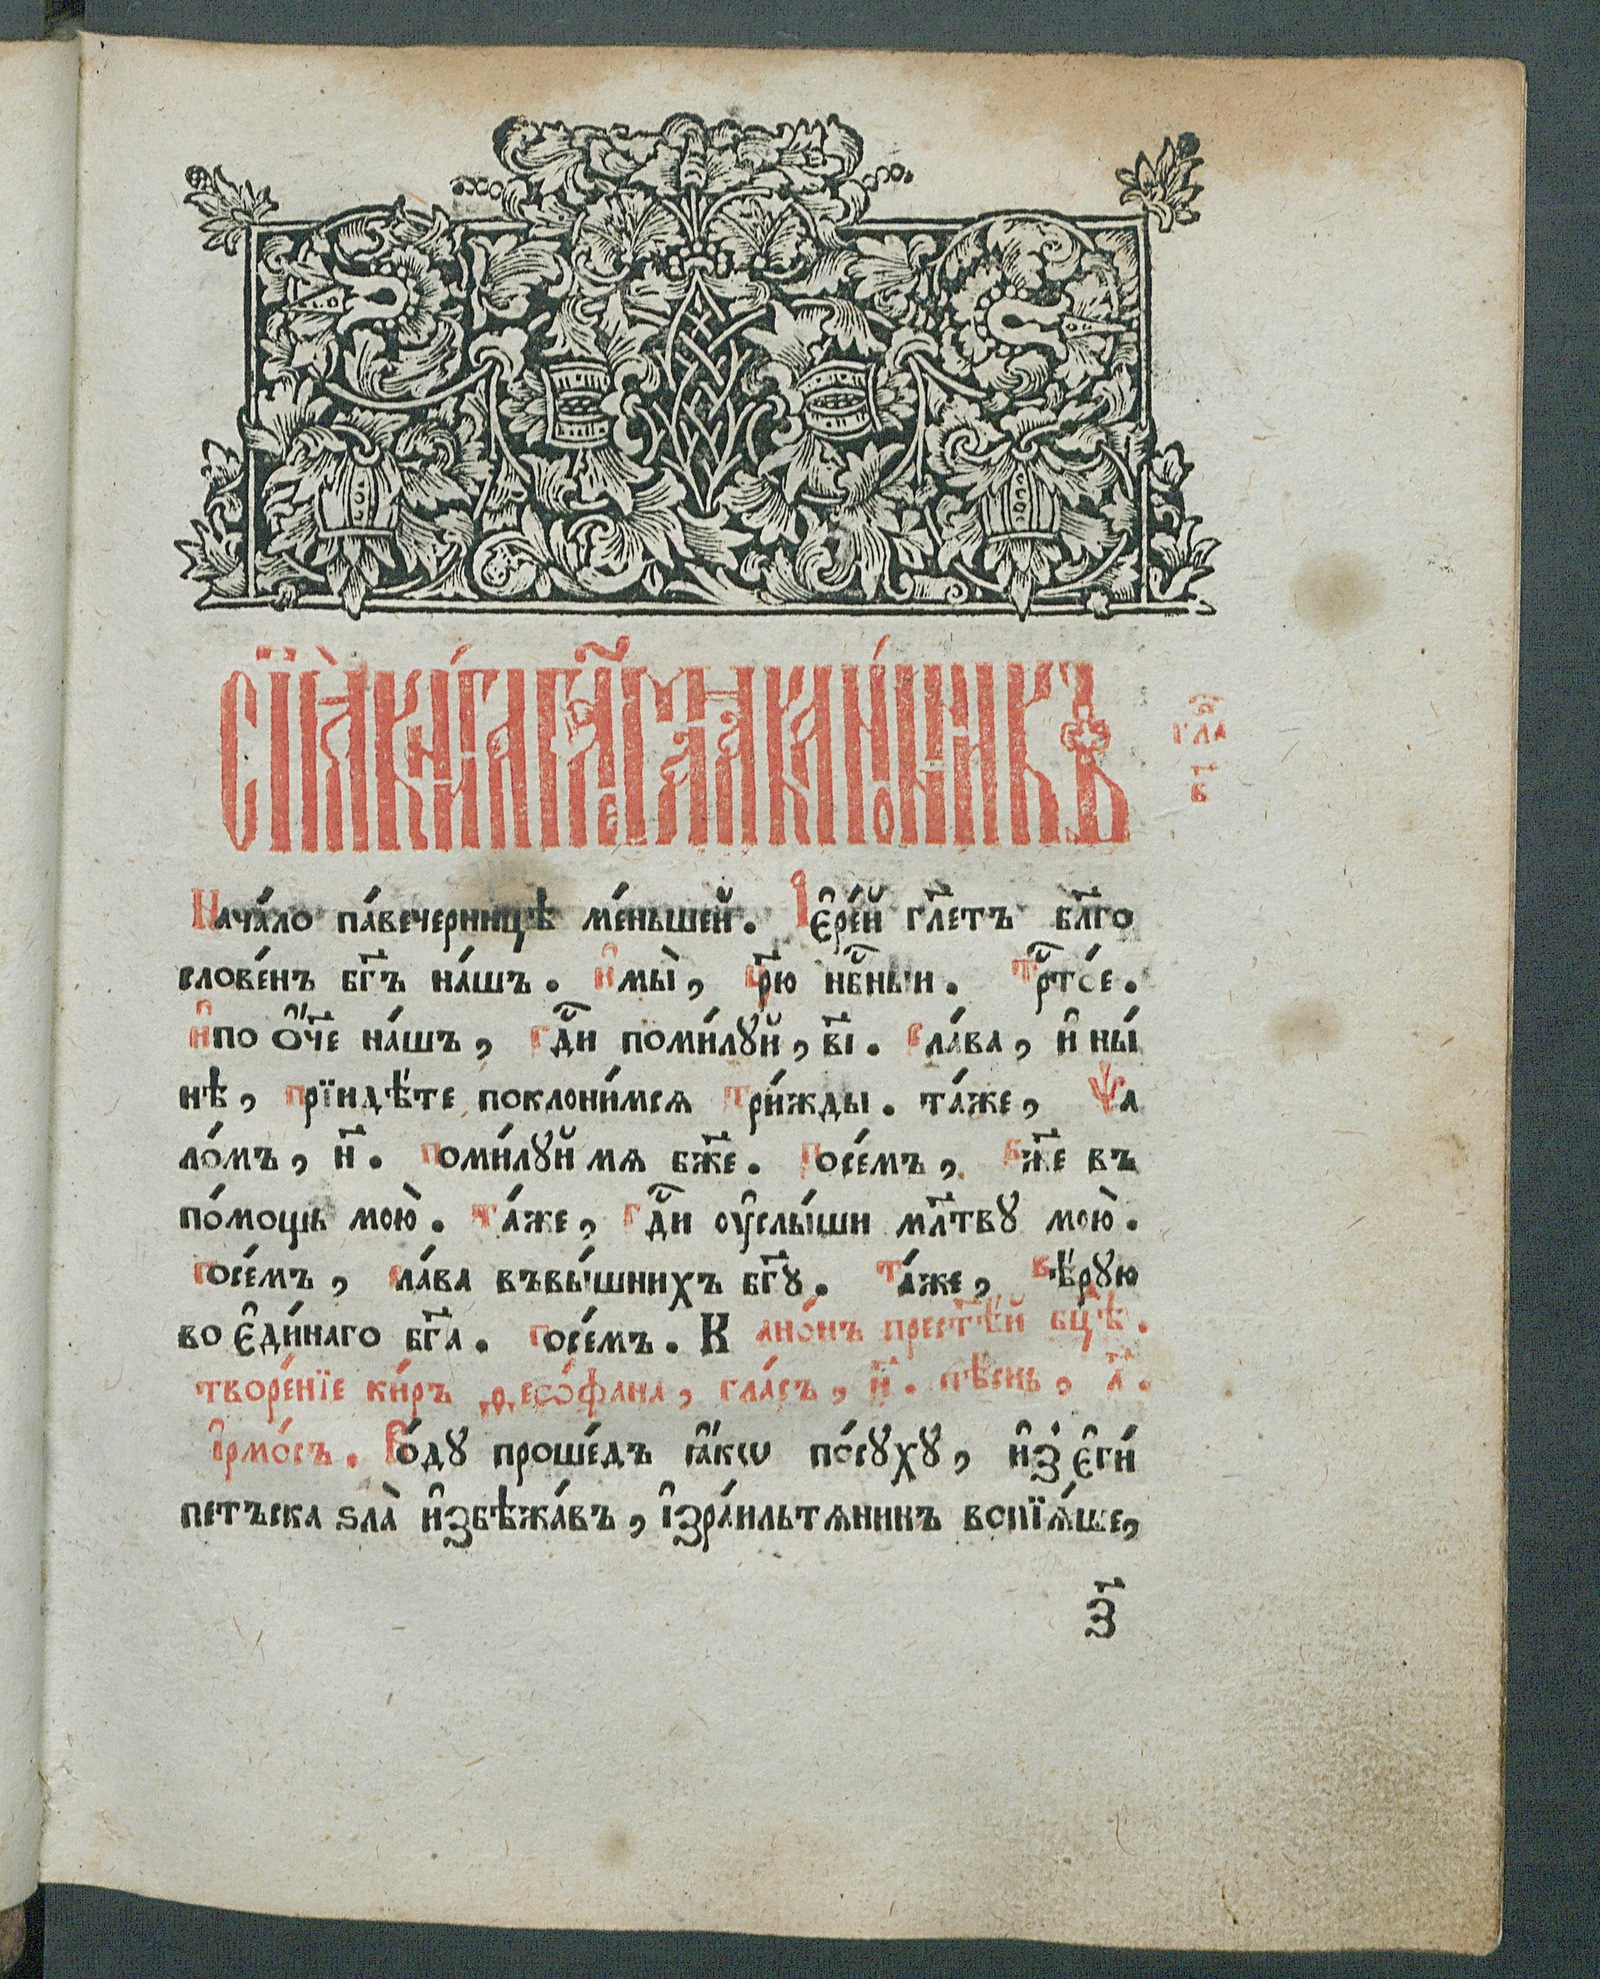 Сїѧ̀ кни́га гл҃емаѧ кано́нникъ
гла̑
в҃
Нача́ло па́вечерницѣ ме́ньшей. І҆ере́й гл҃етъ бл҃го
слове́нъ бг҃ъ на́шъ. И҆ мы̀, цр҃ю нб҇ныи. Трст҇о́е.
И҆ по ѻ҆́ч҃е на́шъ, гд҇и поми́лꙋй, в҃і. сла́ва, и҆ ны́
нѣ, прїидѣ́те поклони́мсѧ три́жды. та́же, Ѱа
ло́мъ, н҃. поми́лꙋй мѧ бж҃е. посе́мъ, бж҃е въ
по́мощь мою̀. та́же, гд҇и оу҆слы́ши мл҃твꙋ мою̀.
посе́мъ, сла́ва въ вы́шнихъ бг҃ꙋ. та́же, вѣ́рꙋю
во є҆ди́наго бг҃а. посе́мъ. Кано́нъ прест҃ѣ́й бц҃ѣ.
творе́нїе ки́ръ ѳеѡсѳа́на, гла́съ, и҃. пѣ́снь, а҃.
і҆рмо́съ. Во́дꙋ проше́дъ ꙗ҆́кѡ по́сꙋхꙋ, и҆з̾ є҆ги́
петъска ѕла̀ и҆збѣжа́въ, і҆зра́ильтѧнинъ вопїѧ́ше,
з҃